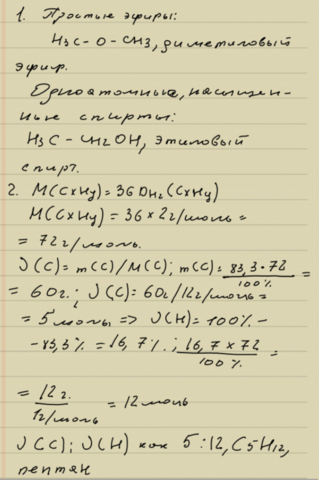 1. Простые эфиры:
H3C - O - CH3, диметиловый
эфир.
Одноатомные, насыщен-
ные спирты:
H3C - CH2OH, этиловый
спирт.
2. M(CxHy) = 36DH2(CxHy)
M(CxHy) = 36 × 2г/моль =
= 72 г/моль.
ν(C) = m(C)/M(C); m(C) = 83,3·72/100% =
= 60г.; ν(C) = 60г/12г/моль =
= 5 моль => ν(H) = 100% -
- 83,3% = 16,7%.; 16,7 × 72/100% =
= 12г./1г/моль = 12 моль
ν(C); ν(H) как 5:12, C5H12,
пентан